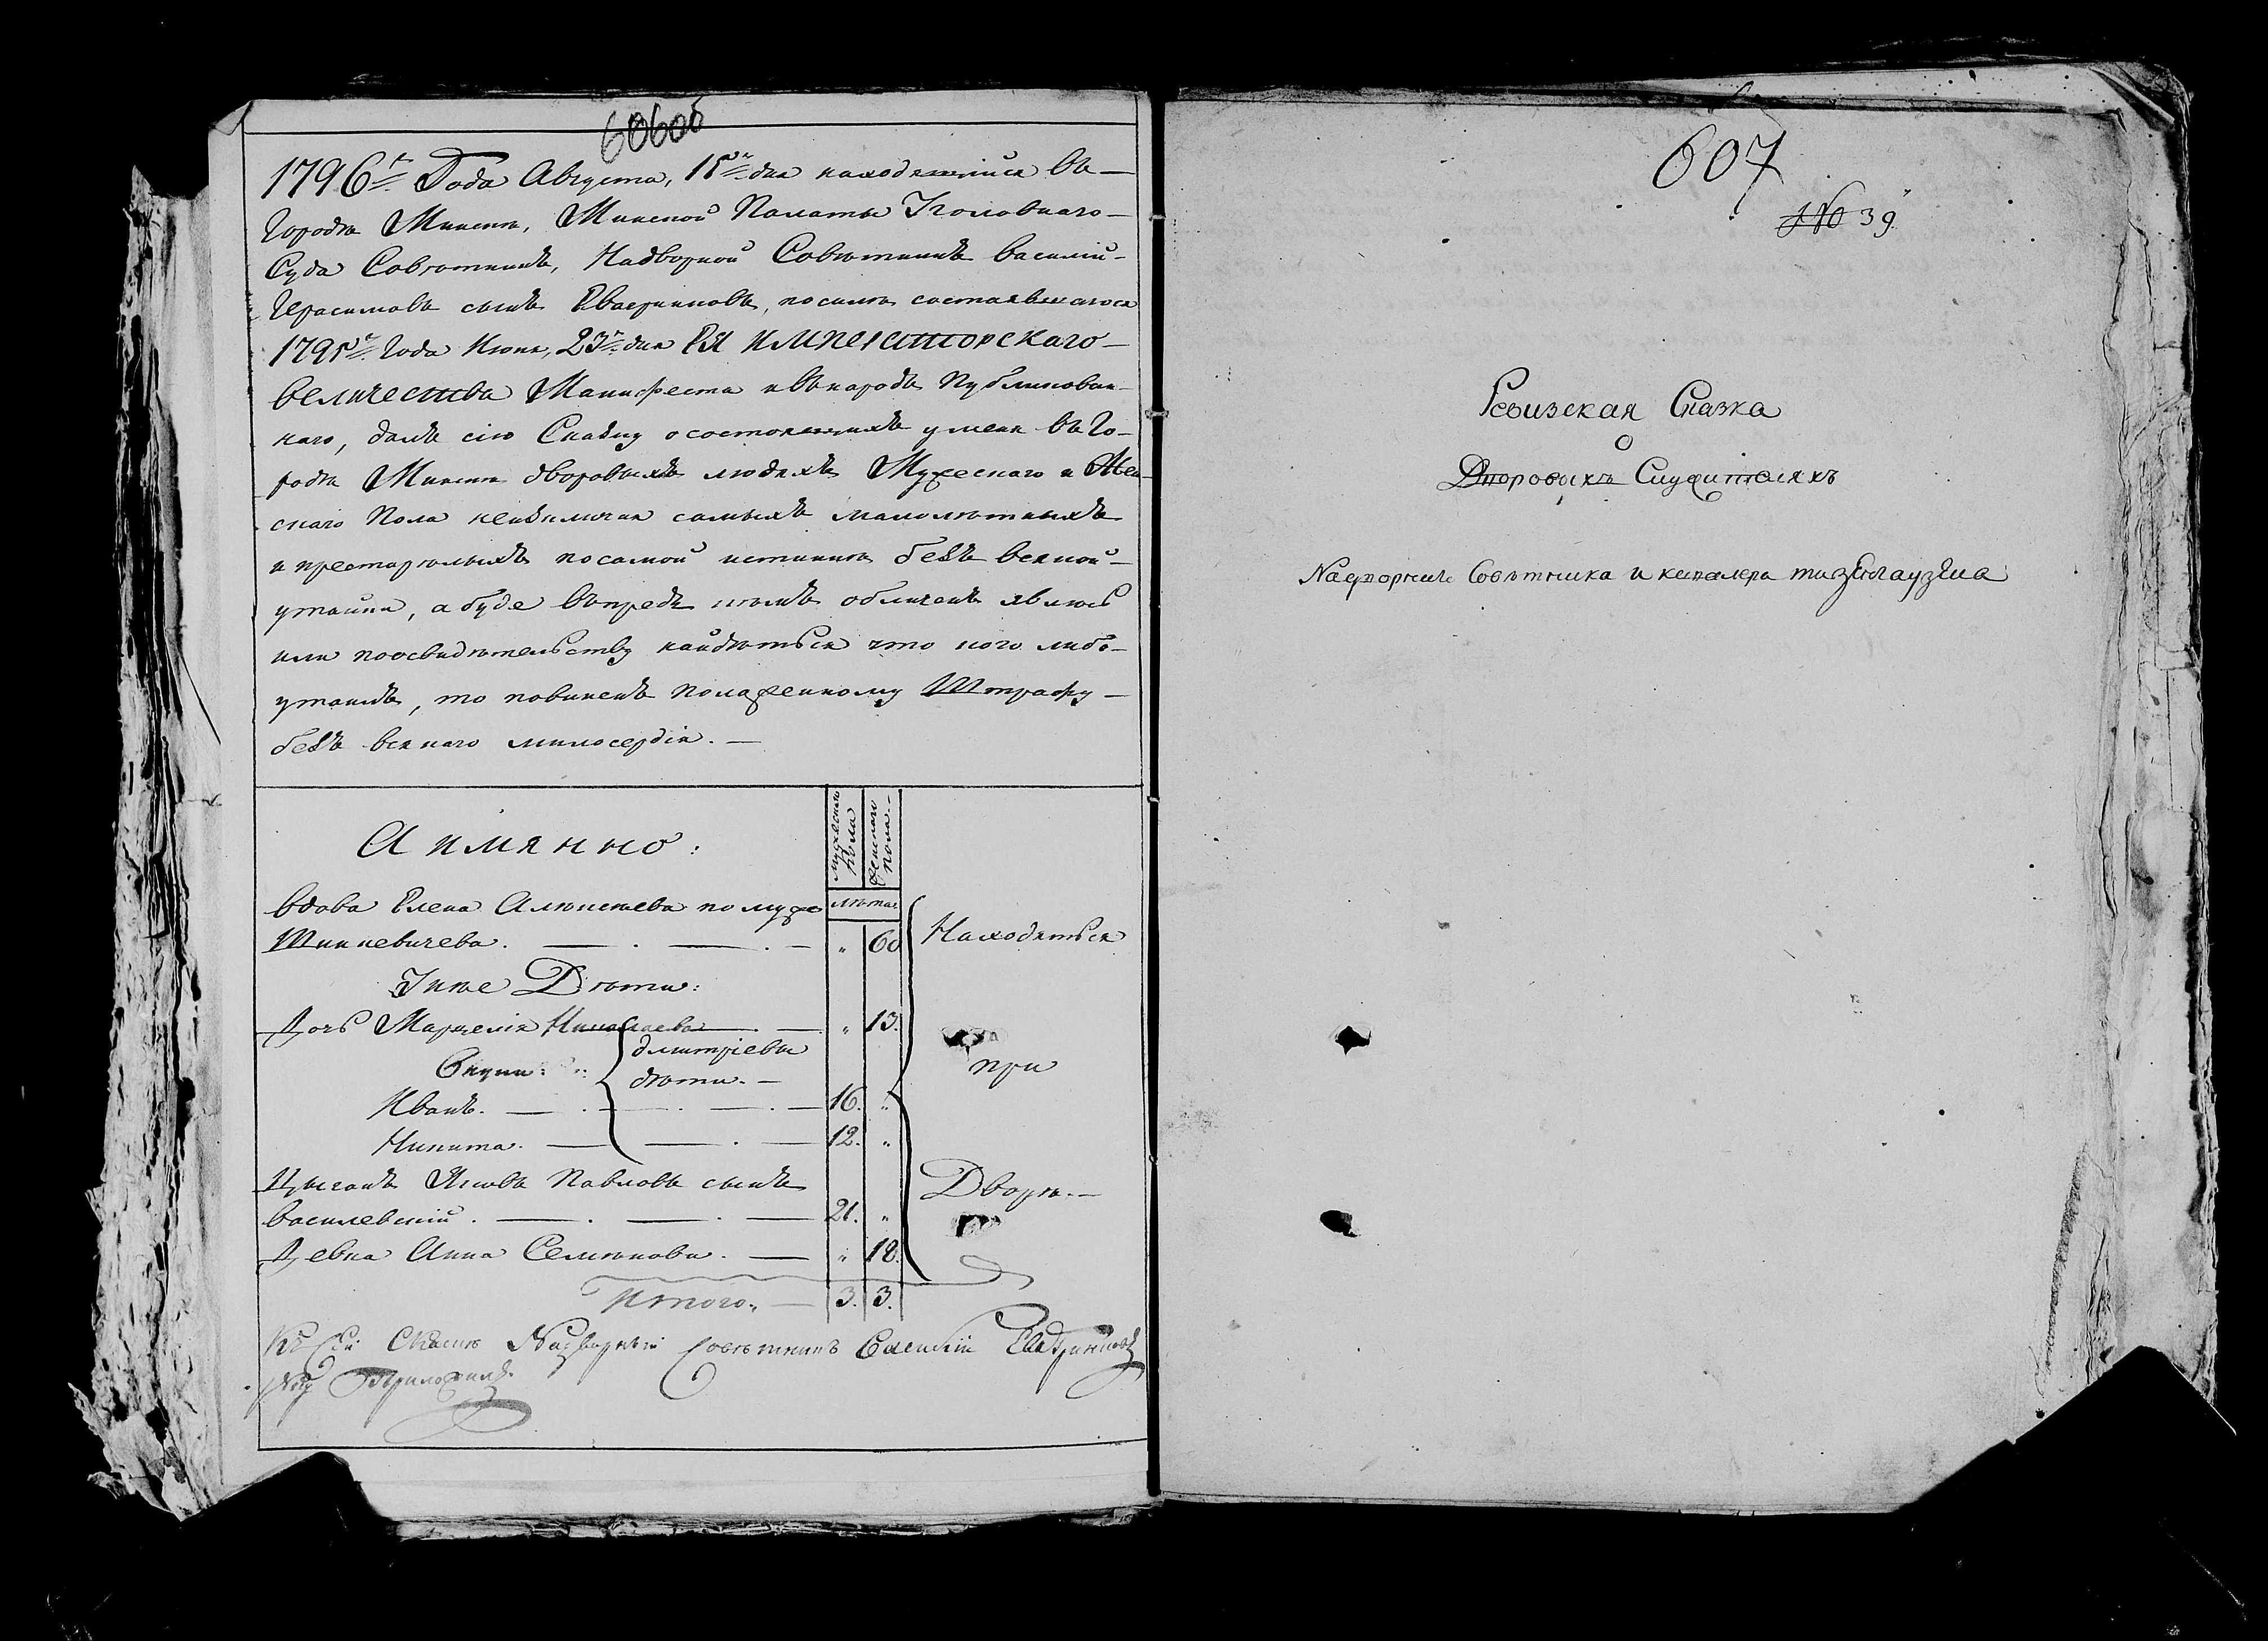 606об
1796го Года Августа, 15го дня находящийся въ
Городѣ Минскѣ, Минской Палаты Уголовнаго
Суда Совѣтникъ, Надворной Совѣтникъ Василій
Герасимовъ сынъ Евдркиновъ, посилѣ состоявшагося
1795го Года Июня, 23го дня ЕЯ ИМПЕРАТОРСКАГО
ВЕЛИЧЕСТВА Манифеста и въ народъ Публикован
наго, далъ сію Сказку о состоящихъ у меня въ Го
родѣ Минскѣ дворовыхъ людяхъ Мужескаго и Жен
скаго Пола не изключая самыхъ малолѣтныхъ
и престарѣлыхъ по самой истиннѣ безъ всякой
утайки, а буде въпредь кѣмъ обличенъ явлюсь
или поосвидѣтельству найдѣться что кого либо
утаилъ, то повиненъ Положенному Штрафу
безъ всякаго милосердія.
А имянно:
Мужескаго Пола
Женскаго Пола
Лѣта
Вдова Елена Алексѣева по мужѣ
Шинкевичева. " 60
Находяться
У нее Дѣти:
Дочь Марцелія Николаева " 13.
Внуки: Дмитріевы дѣти.
при
Иванъ. 16. "
Никита. 12. "
Цыганъ Яковъ Павловъ сынъ
Дворѣ.
Василевскій. 21. "
Девка Анна Семѣнова. " 18.
Итого. 3. 3.
Къ сей Сказкѣ Надворный Совѣтникъ Василій
Руку Приложилъ.
607
№ 39
Ревизская Сказка
О
Дворовыхъ Служителяхъ
Надворнаго Совѣтника и кавалера